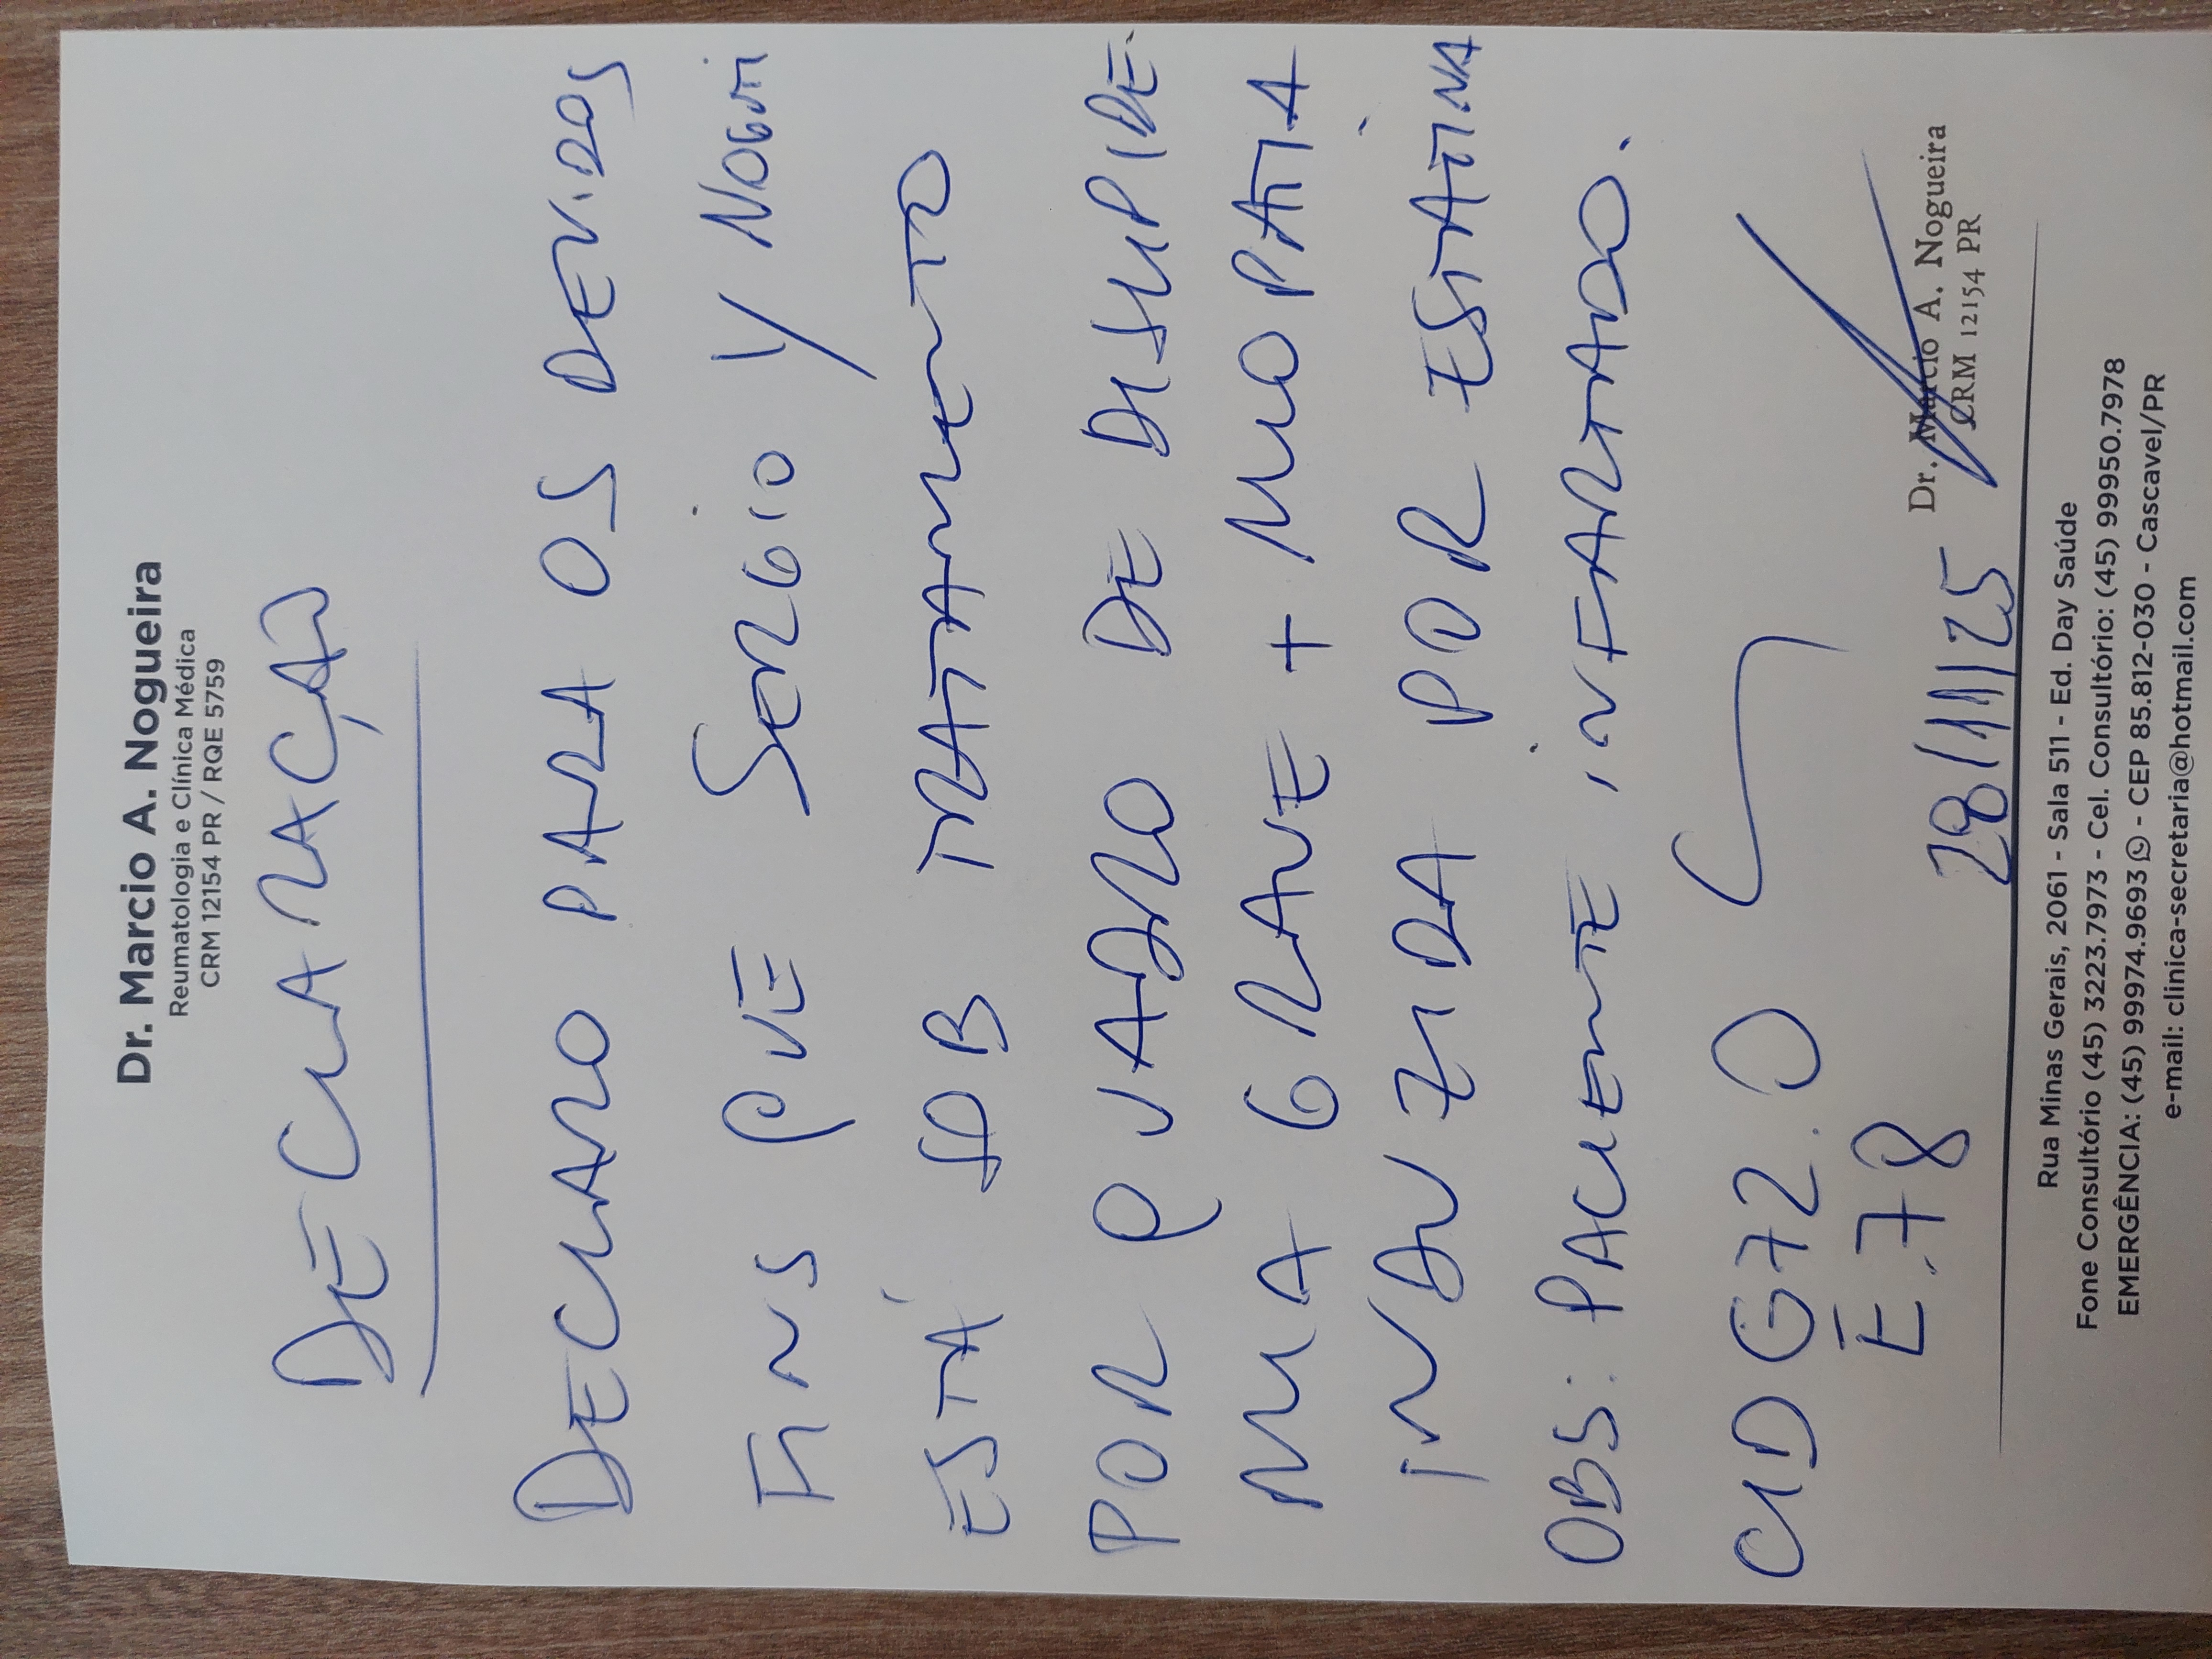 Dr. Marcio A. Nogueira
Reumatologia e Clínica Médica
CRM 12154 PR / RQE 5759
DECLARAÇÃO
DECLARO PARA OS DEVIDOS
FINS QUE SERGIO Y NOGUTI
ESTÁ SOB TRATAMENTO
POR QUADRO DE DISLIPIDE
MIA GRAVE + MIOPATIA
INDUZIDA POR ESTATINA
OBS: PACIENTE INFARTADO.
CID G72.0
E.78
28/11/25
Dr. Marcio A. Nogueira
CRM 12154 PR
Rua Minas Gerais, 2061 - Sala 511 - Ed. Day Saúde
Fone Consultório (45) 3223.7973 - Cel. Consultório: (45) 99950.7978
EMERGÊNCIA: (45) 99974.9693 - CEP 85.812-030 - Cascavel/PR
e-mail: clinica-secretaria@hotmail.com